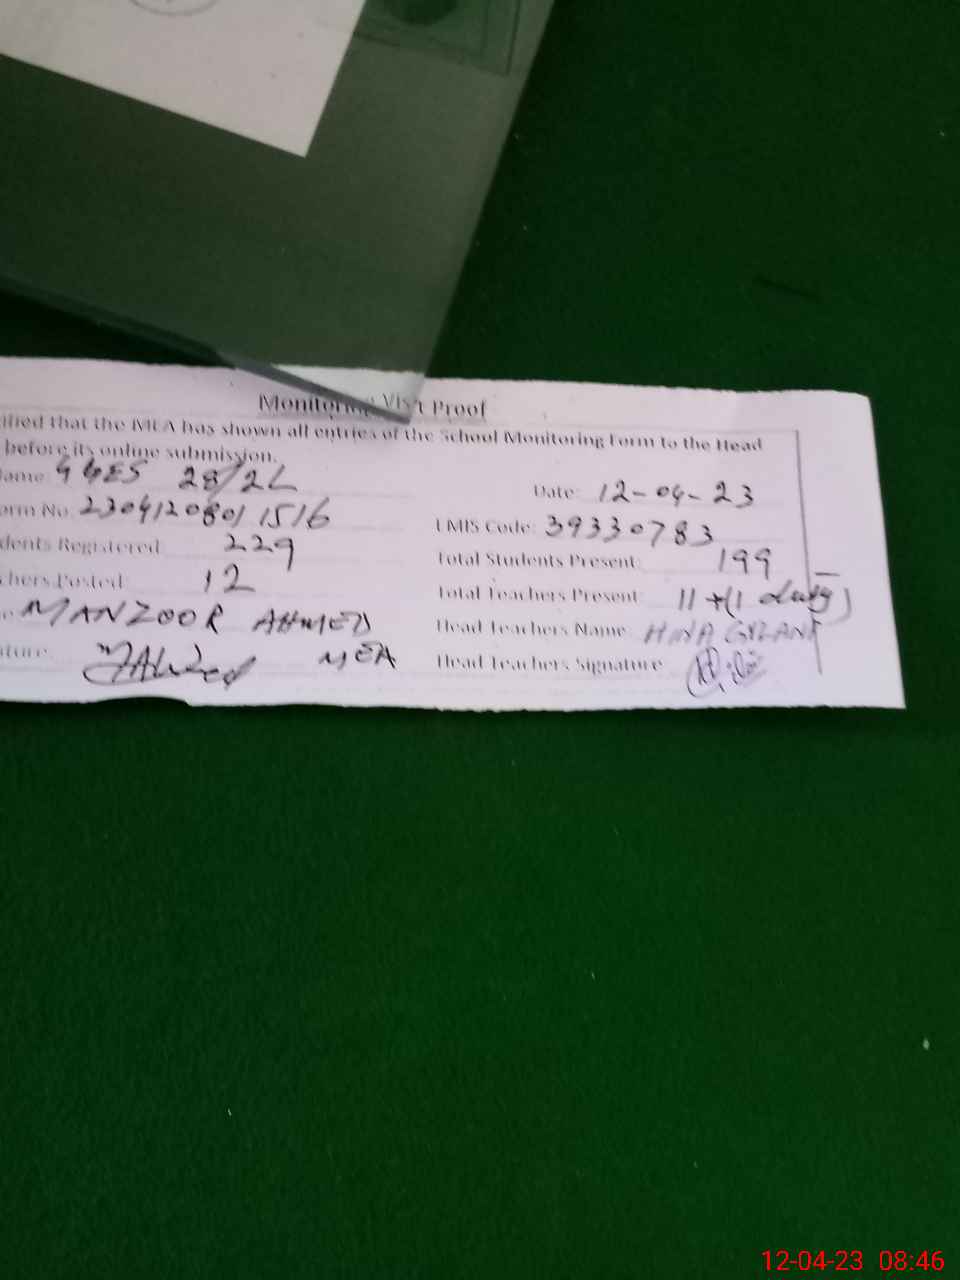 Monitoring Visit Proof
ified that the MEA has shown all entries of the School Monitoring Form to the Head
before its online submission.
ame: GGES 28/2L
Date: 12-04-23
orm No. 2304120801 1516
EMIS Code: 39330783
dents Registered: 229
Total Students Present: 199
chers Posted: 12
Total Teachers Present: 11+(1 duty)
MANZOOR AHMED
Head Teachers Name: HINA
ture:
MEA
Head Teachers Signature
12-04-23 08:46